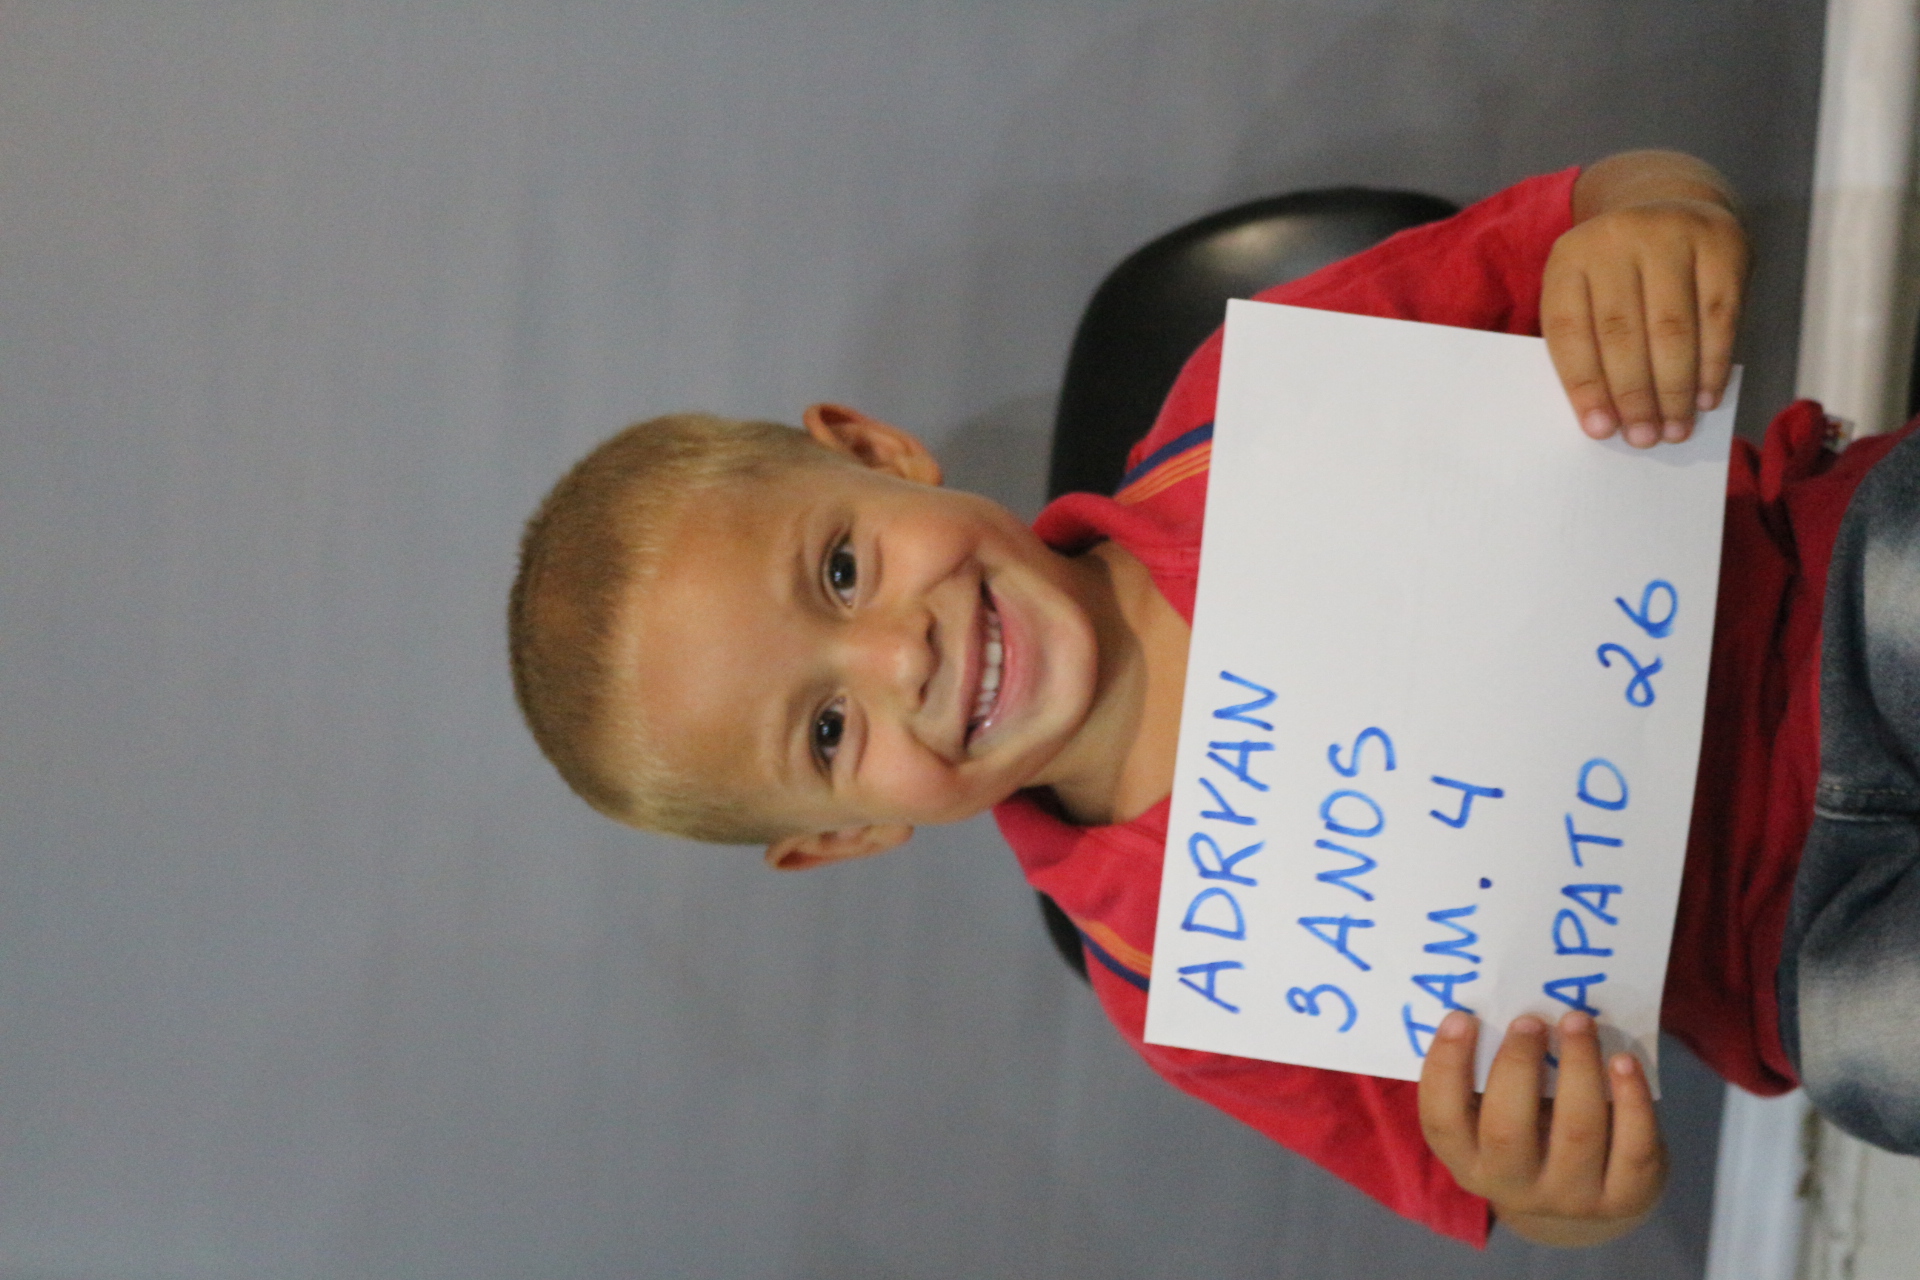 ADRYAN
3 ANOS
TAM. 4
SAPATO 26